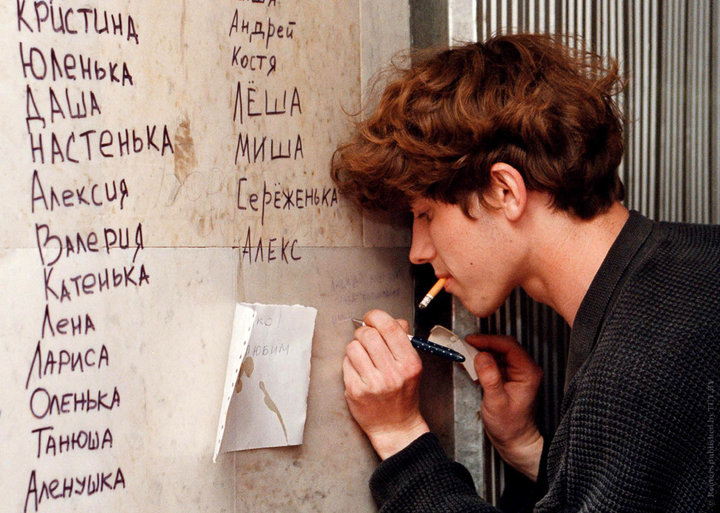 Кристина
Юленька
Даша
Настенька
Алексия
Валерия
Катенька
Лена
Лариса
Оленька
Танюша
Аленушка
Андрей
Костя
Лёша
Миша
Серёженька
Алекс